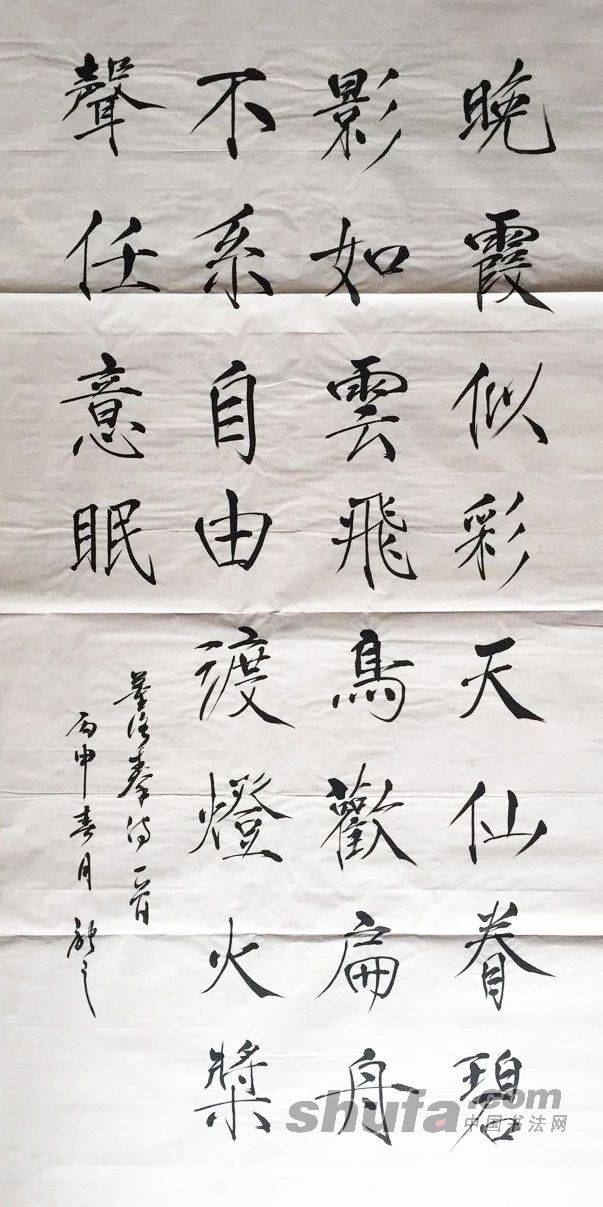 晚霞似彩天仙眷碧
影如雲飛鳥歡扁舟
不系自由渡燈火槳
聲任意眠
诗一首
丙申春月
shufa.com
中国书法网